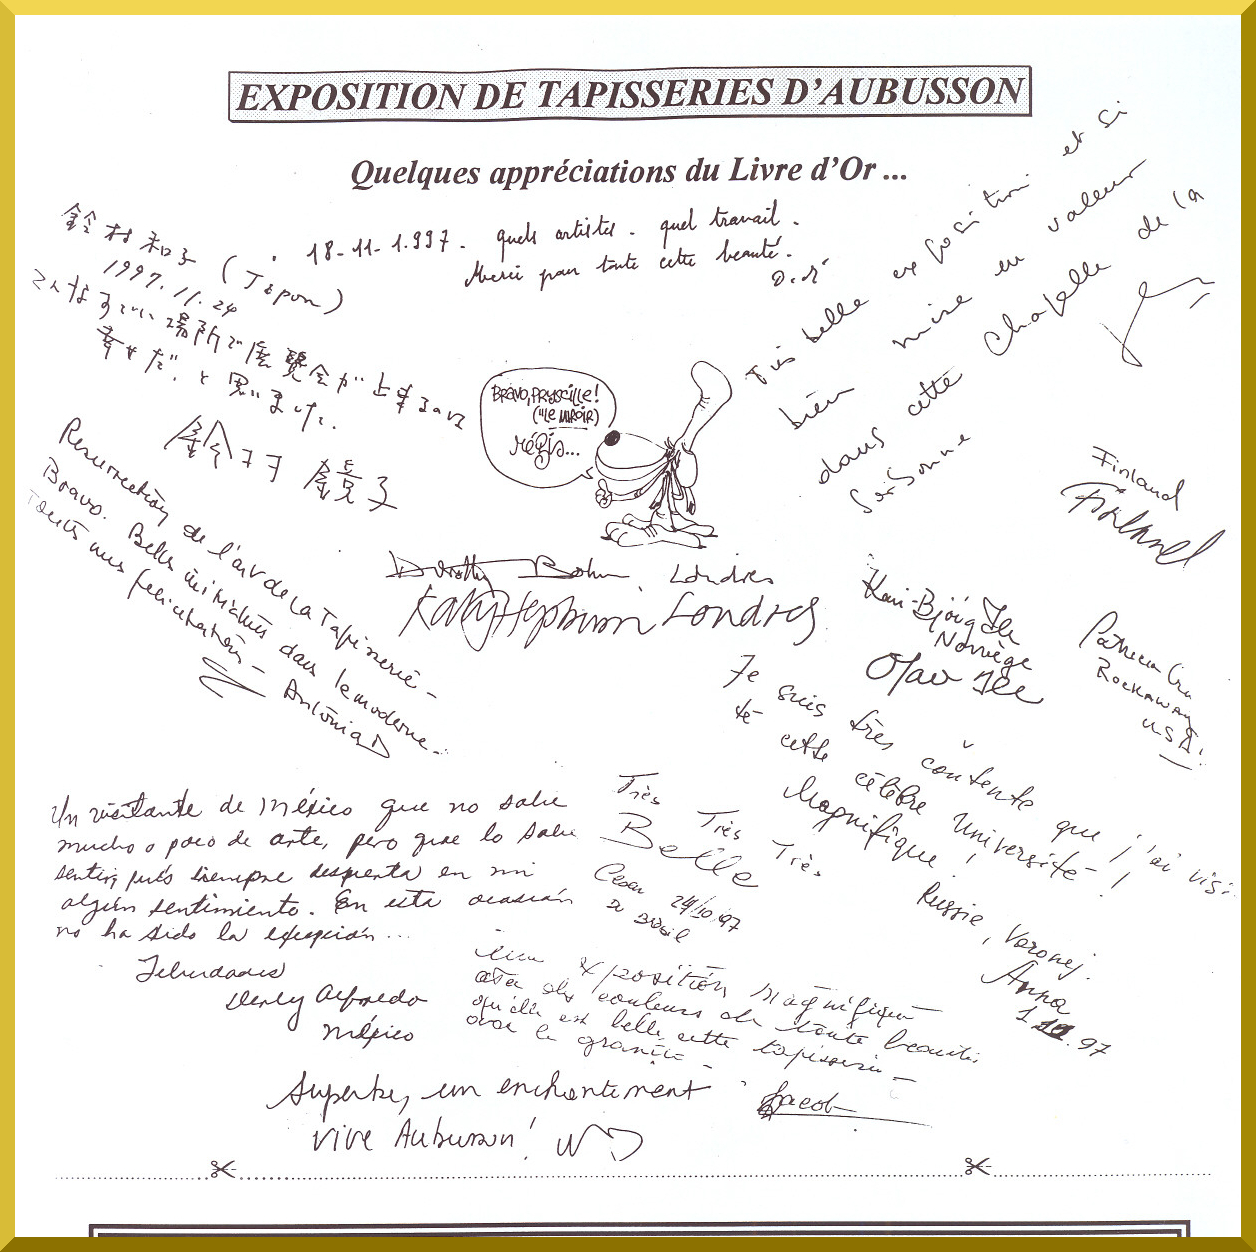 EXPOSITION DE TAPISSERIES D'AUBUSSON
Quelques appréciations du Livre d'Or ...
鈴村和子 (Japon)
1997.11.24
こんなすごい場所で展覧会が出来るのは
幸せだ。と思いました。
18-11-1.997. quels artistes. quel travail.
Merci pour toute cette beauté.
Très belle exposition et si
bien mise en valeur
dans cette Chapelle de la
Sorbonne
BRAVO, PRYSCILLE!
("LE MIROIR)
RÉGIS...
Resurrection de l'art de la Tapisserie -
Bravo. Belles initiatives dans le moderne.
Toutes mes felicitations -
Antônia
Finland
Dorothy Bohm, Londres
Katy Hepburn Londres
Kari-Bjørg Ile
Norvège
Olav Ile
Patricia
Rockaway
USA!
Je suis très contente que j'ai visi-
té cette célèbre Université!
Magnifique!
Russie, Voronej.
Anna
97
Un visitante de México que no sabe
mucho o poco de arte, pero que lo sabe
sentir, pués siempre despierta en mi
algún sentimiento. En esta ocasión
no ha sido la excepción...
Felicidades
Alfredo
México
Très Très Très
Belle
Cesar 24/10/97
Brésil
Une exposition magnifique
avec des couleurs de toute beauté
qu'elle est belle cette tapisserie -
avec le granite -
Jacob
Superbe, un enchantement
Vive Aubusson!